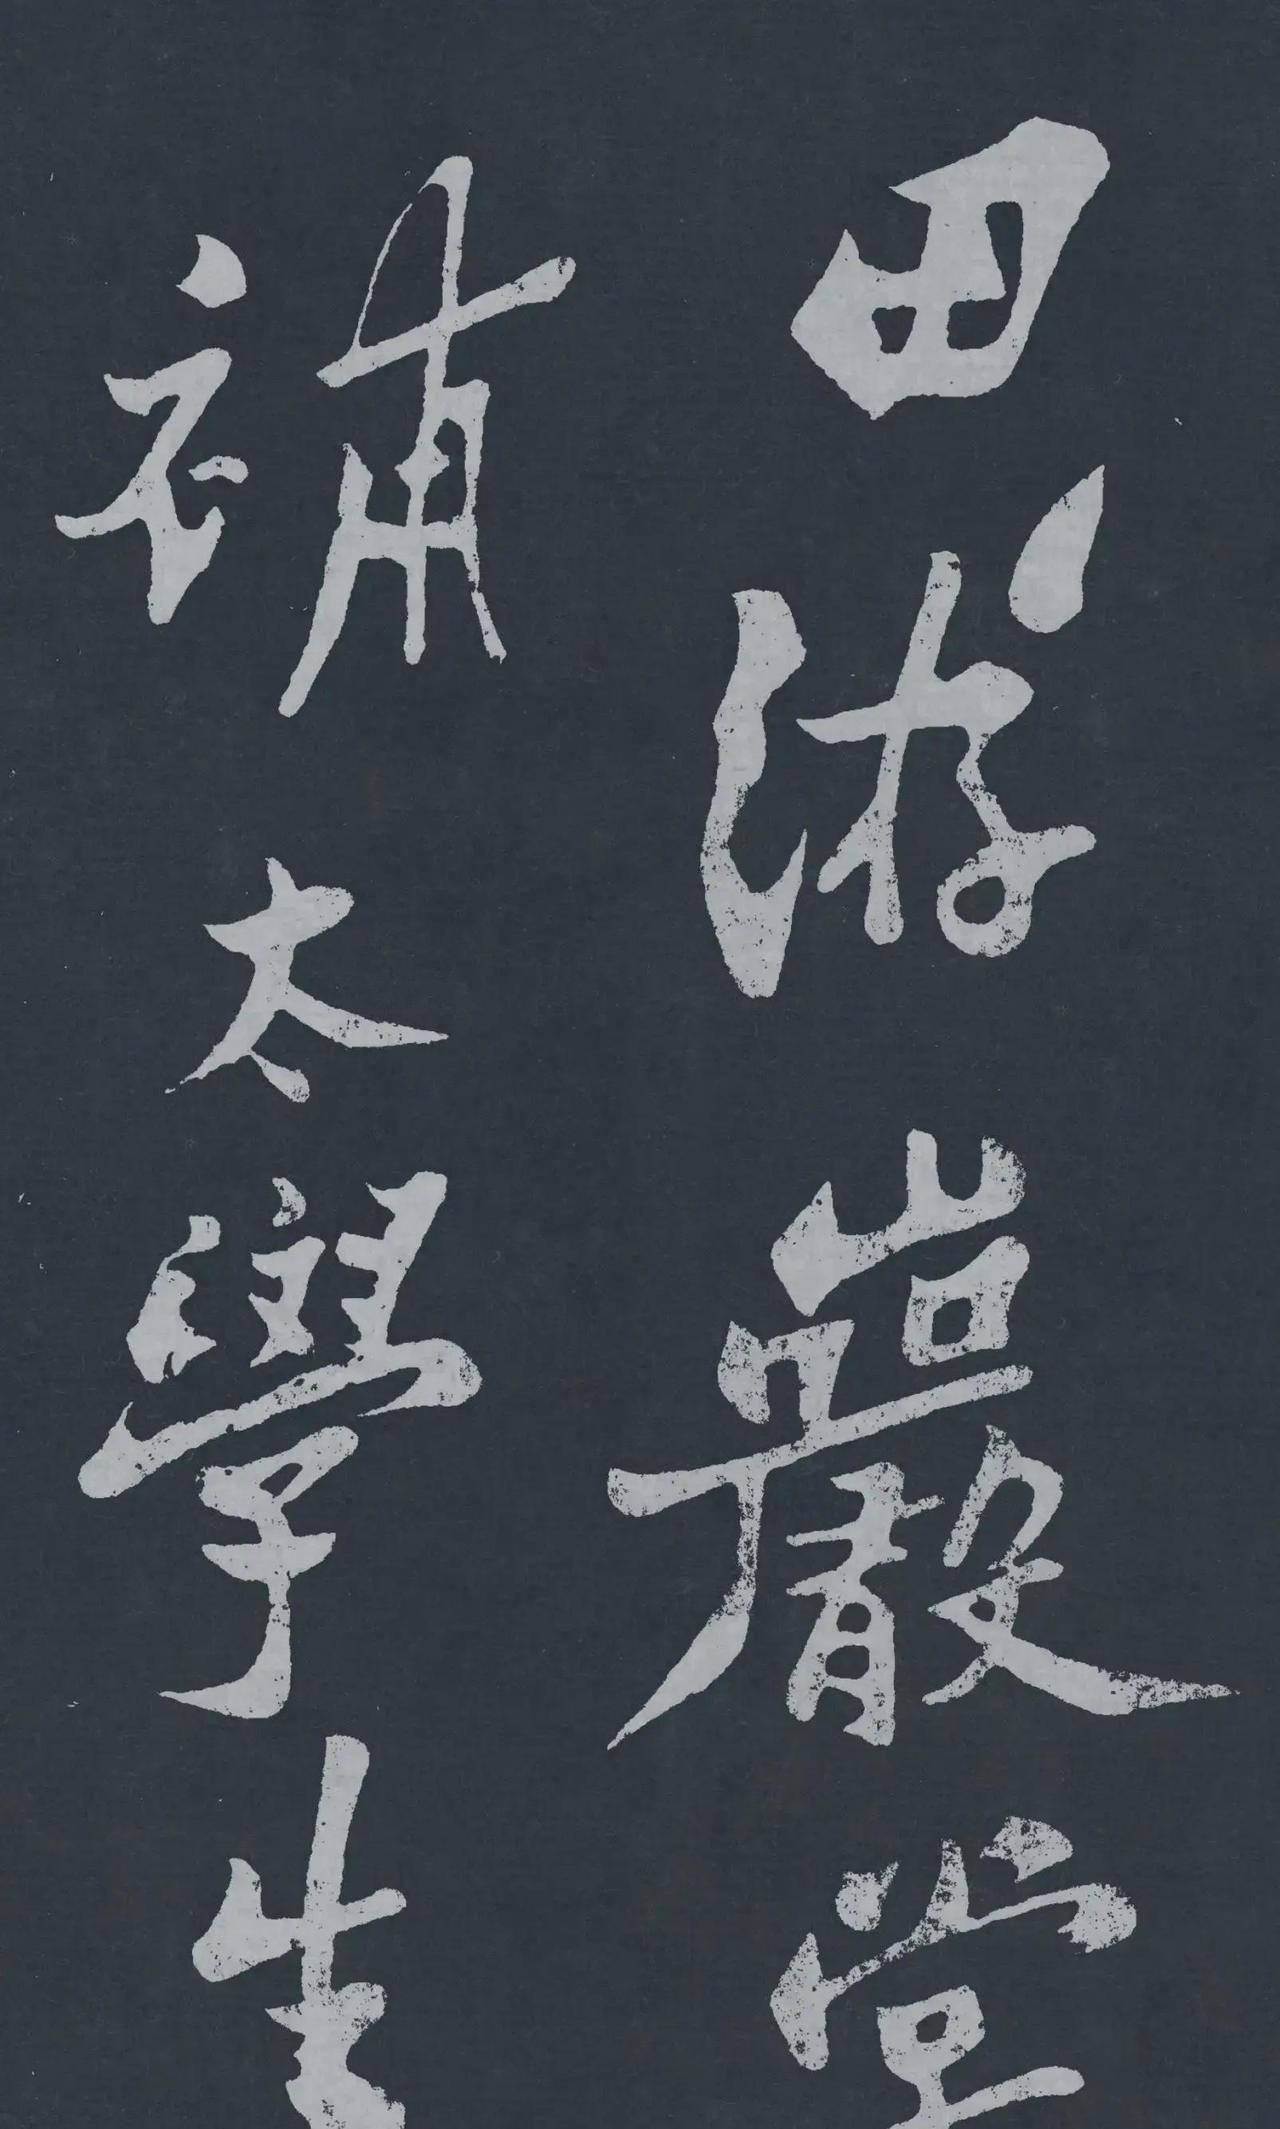 田游巖堂
補太學生